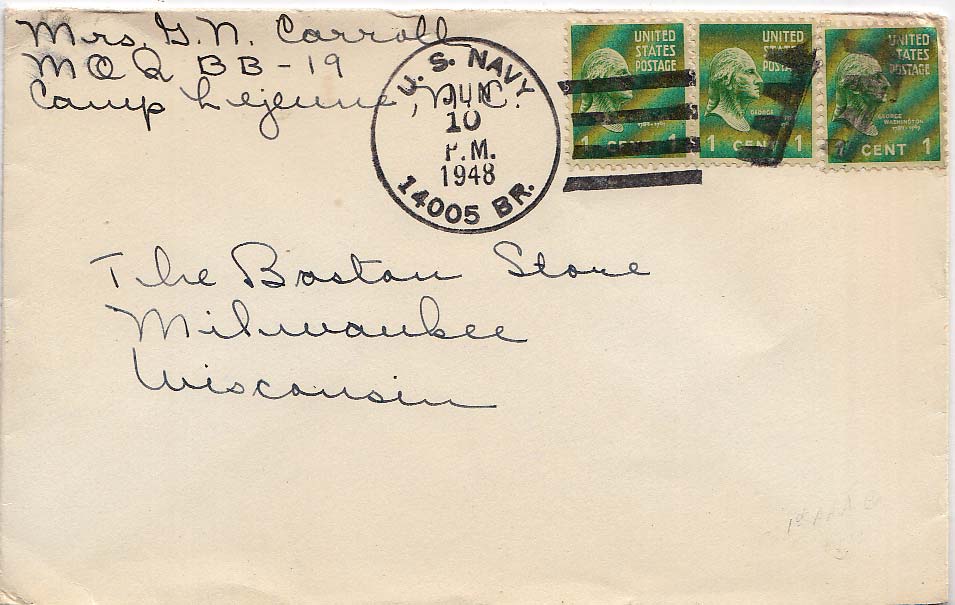 Mrs. G. N. Carroll
MOQ BB-19
Camp Lejeune, N.C.
U. S. NAVY
JUN
10
P.M.
1948
14005 BR.
UNITED STATES POSTAGE
1789-1797
1 CENT 1
UNITED STATES POSTAGE
GEORGE
1 CENT 1
UNITED STATES POSTAGE
GEORGE WASHINGTON
1789-1797
CENT 1
The Boston Store
Milwaukee
Wisconsin